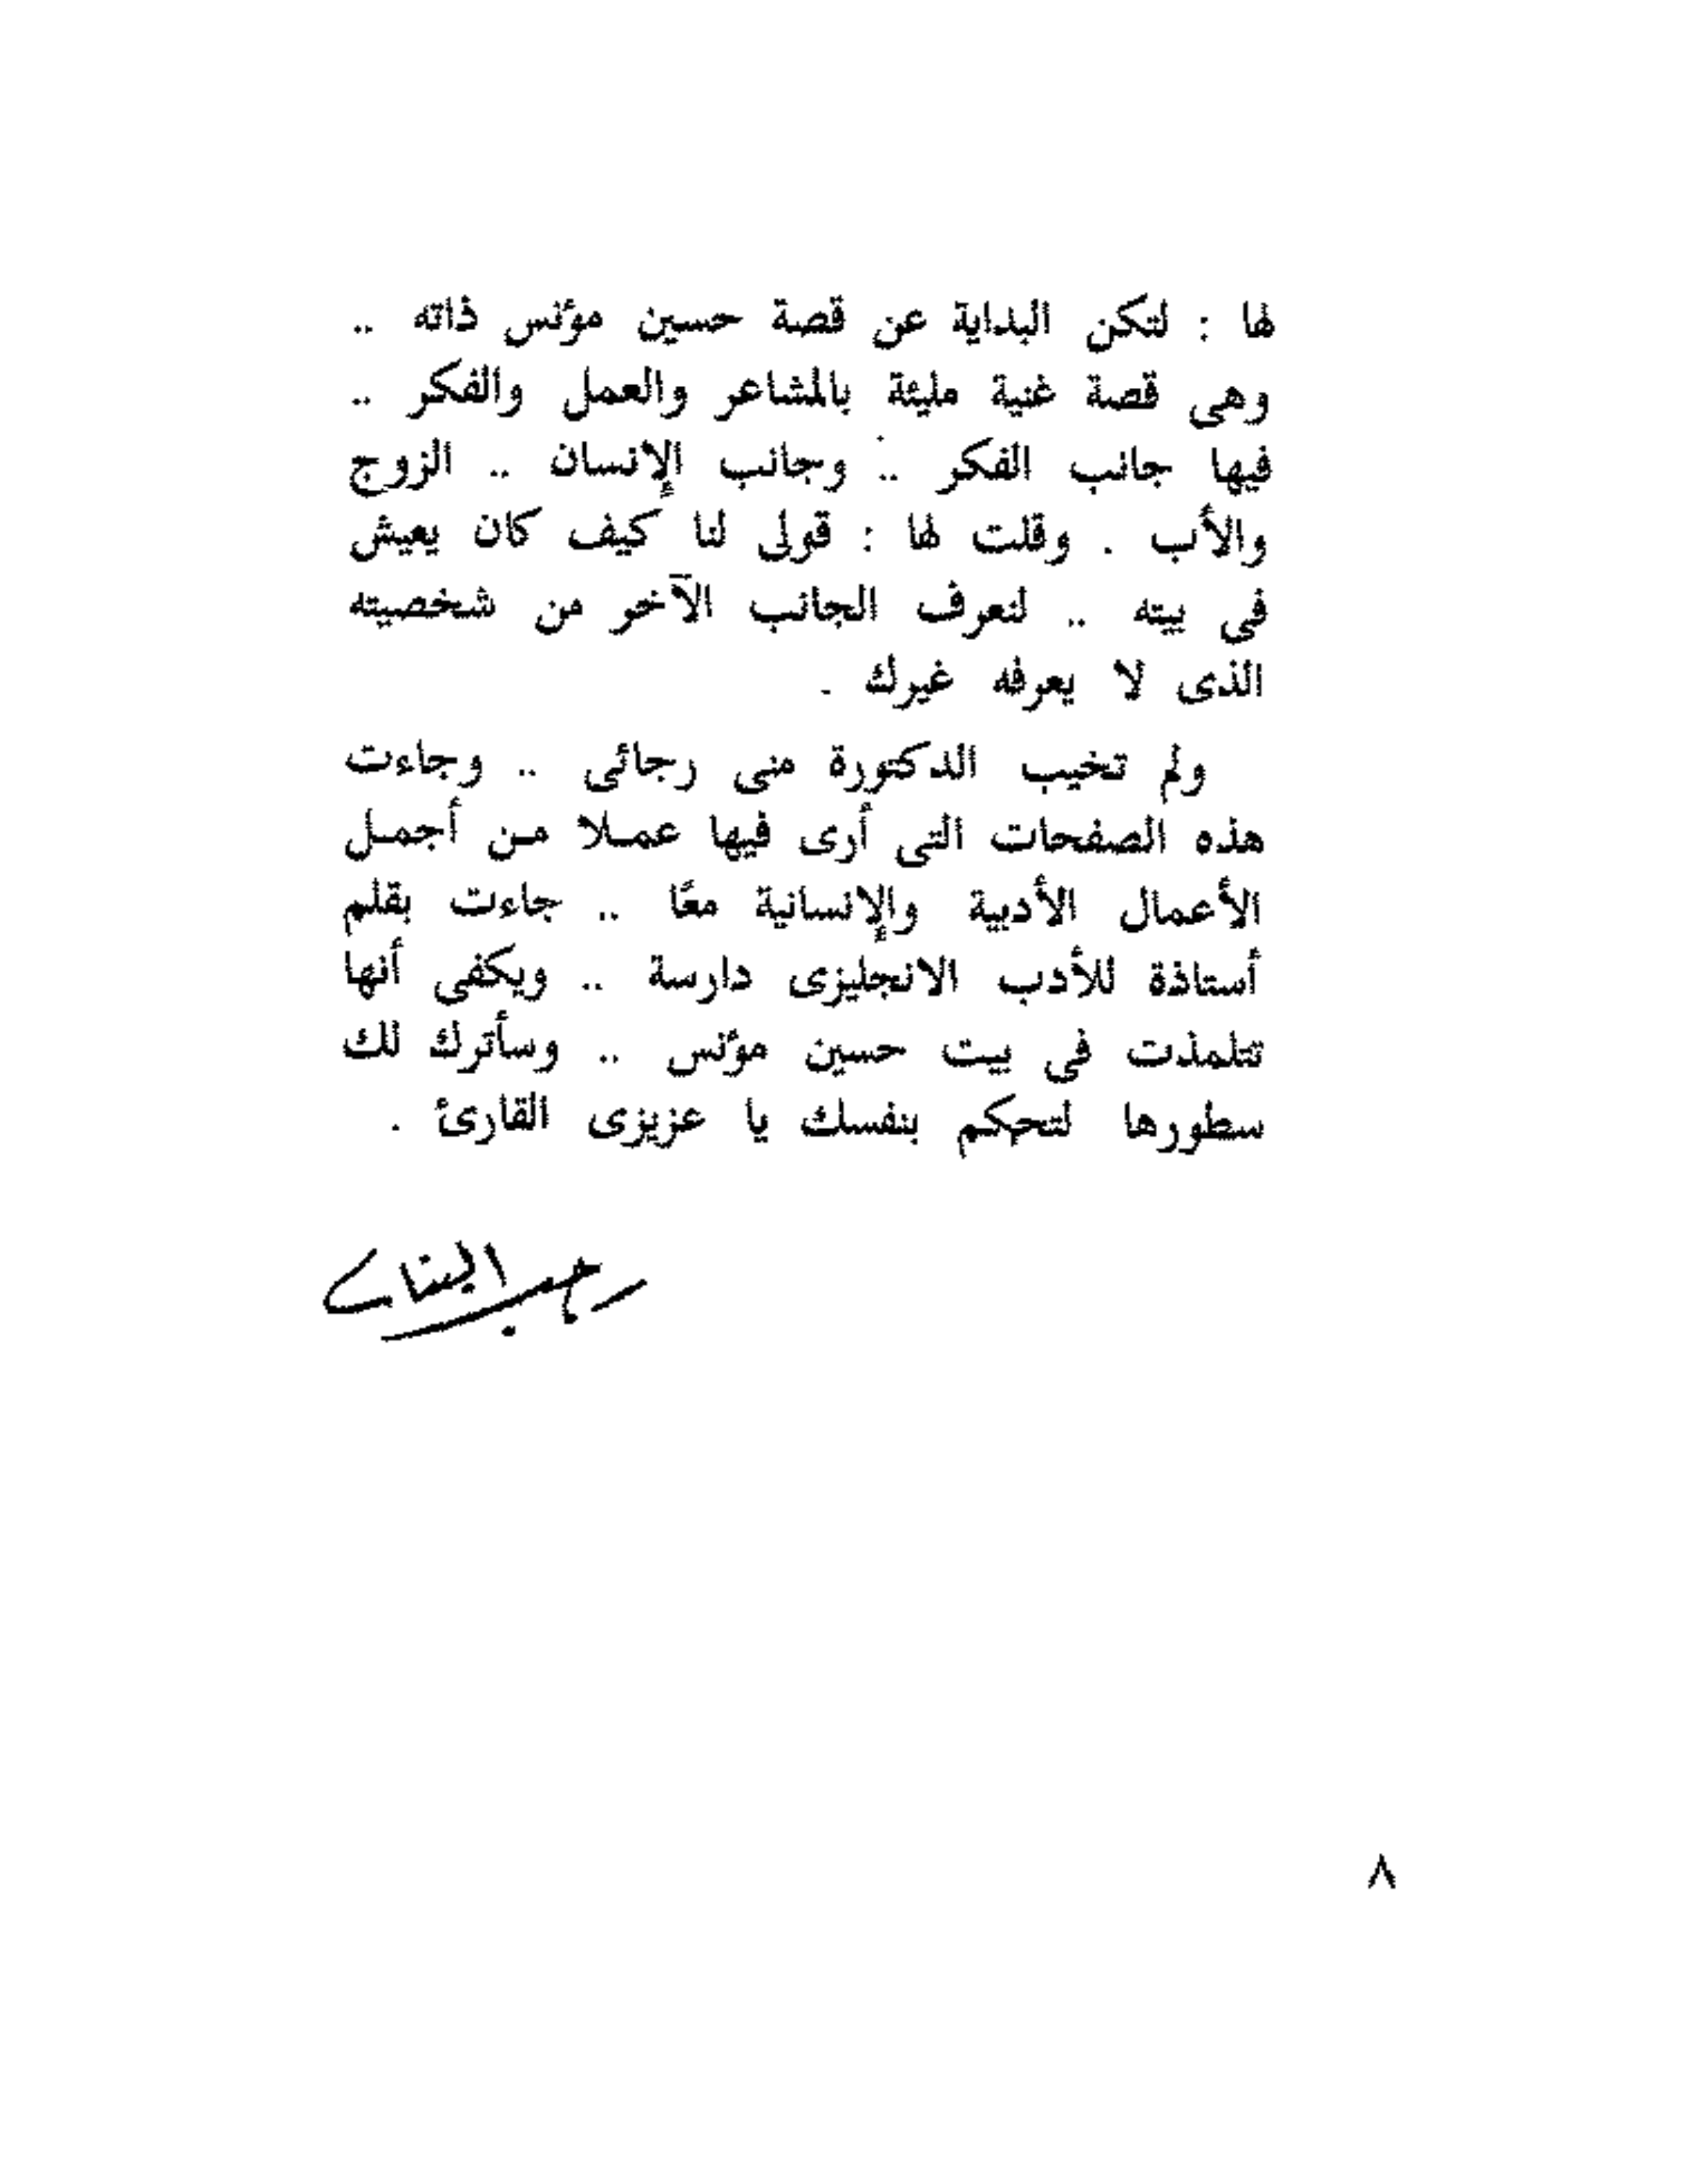 لها : لتكن البداية عن قصة حسين مؤنس ذاته ..
وهى قصة غنية مليئة بالمشاعر والعمل والفكر ..
فيها جانب الفكر .. وجانب الإنسان .. الزوج
والأب . وقلت لها : قولى لنا كيف كان يعيش
فى بيته .. لنعرف الجانب الآخر من شخصيته
الذى لا يعرفه غيرك .
ولم تخيب الدكتورة منى رجائى .. وجاءت
هذه الصفحات التى أرى فيها عملا من أجمل
الأعمال الأدبية والإنسانية معًا .. جاءت بقلم
أستاذة للأدب الانجليزى دارسة .. ويكفى أنها
تتلمذت فى بيت حسين مؤنس .. وسأترك لك
سطورها لتحكم بنفسك يا عزيزى القارئ .
رجب البنا
٨